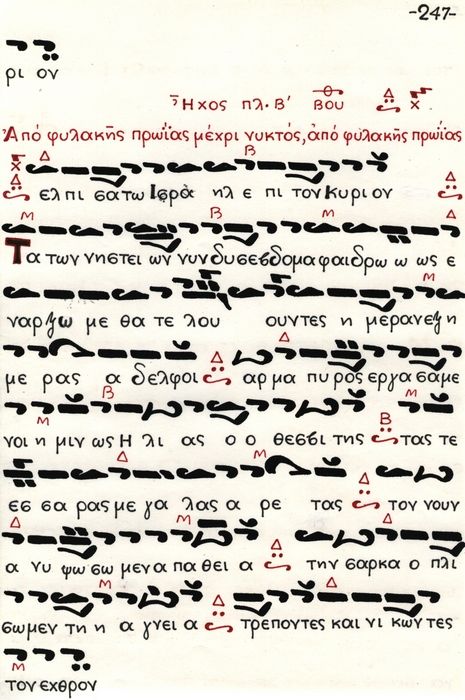 -247-
ρι ον
Ἦχος πλ. Β' Βου Δ χ
Ἀπό φυλακῆς πρωΐας μέχρι νυκτός, ἀπό φυλακῆς πρωΐας
Δ Β
ελ πι σατω Ισρα ηλ ε πι τον Κυριον
Μ Β Μ Δ
Τα των νηστει ων νυν δυσεβδομα φαιδρω ω ως ε
Μ
ναρξω με θα τε λου ουντες η μεραν εξ η
Δ Δ
με ρας α δελφοι αρ μα πυ ρος εργα σαμε
Μ Β Μ Β
νοι η μιν ως Η λι ας ο ο θεσβι της τας τε
Δ Μ Δ
εσ σα ρας με γα λας α ρε τας τον νουν
Δ Μ Δ Δ
α νυ ψω σω μεν α πα θει α την σαρκα ο πλι
Μ Δ Δ
σωμεν τη η α γνει α τρεποντες και νι κωντες
Μ
τον εχθρον